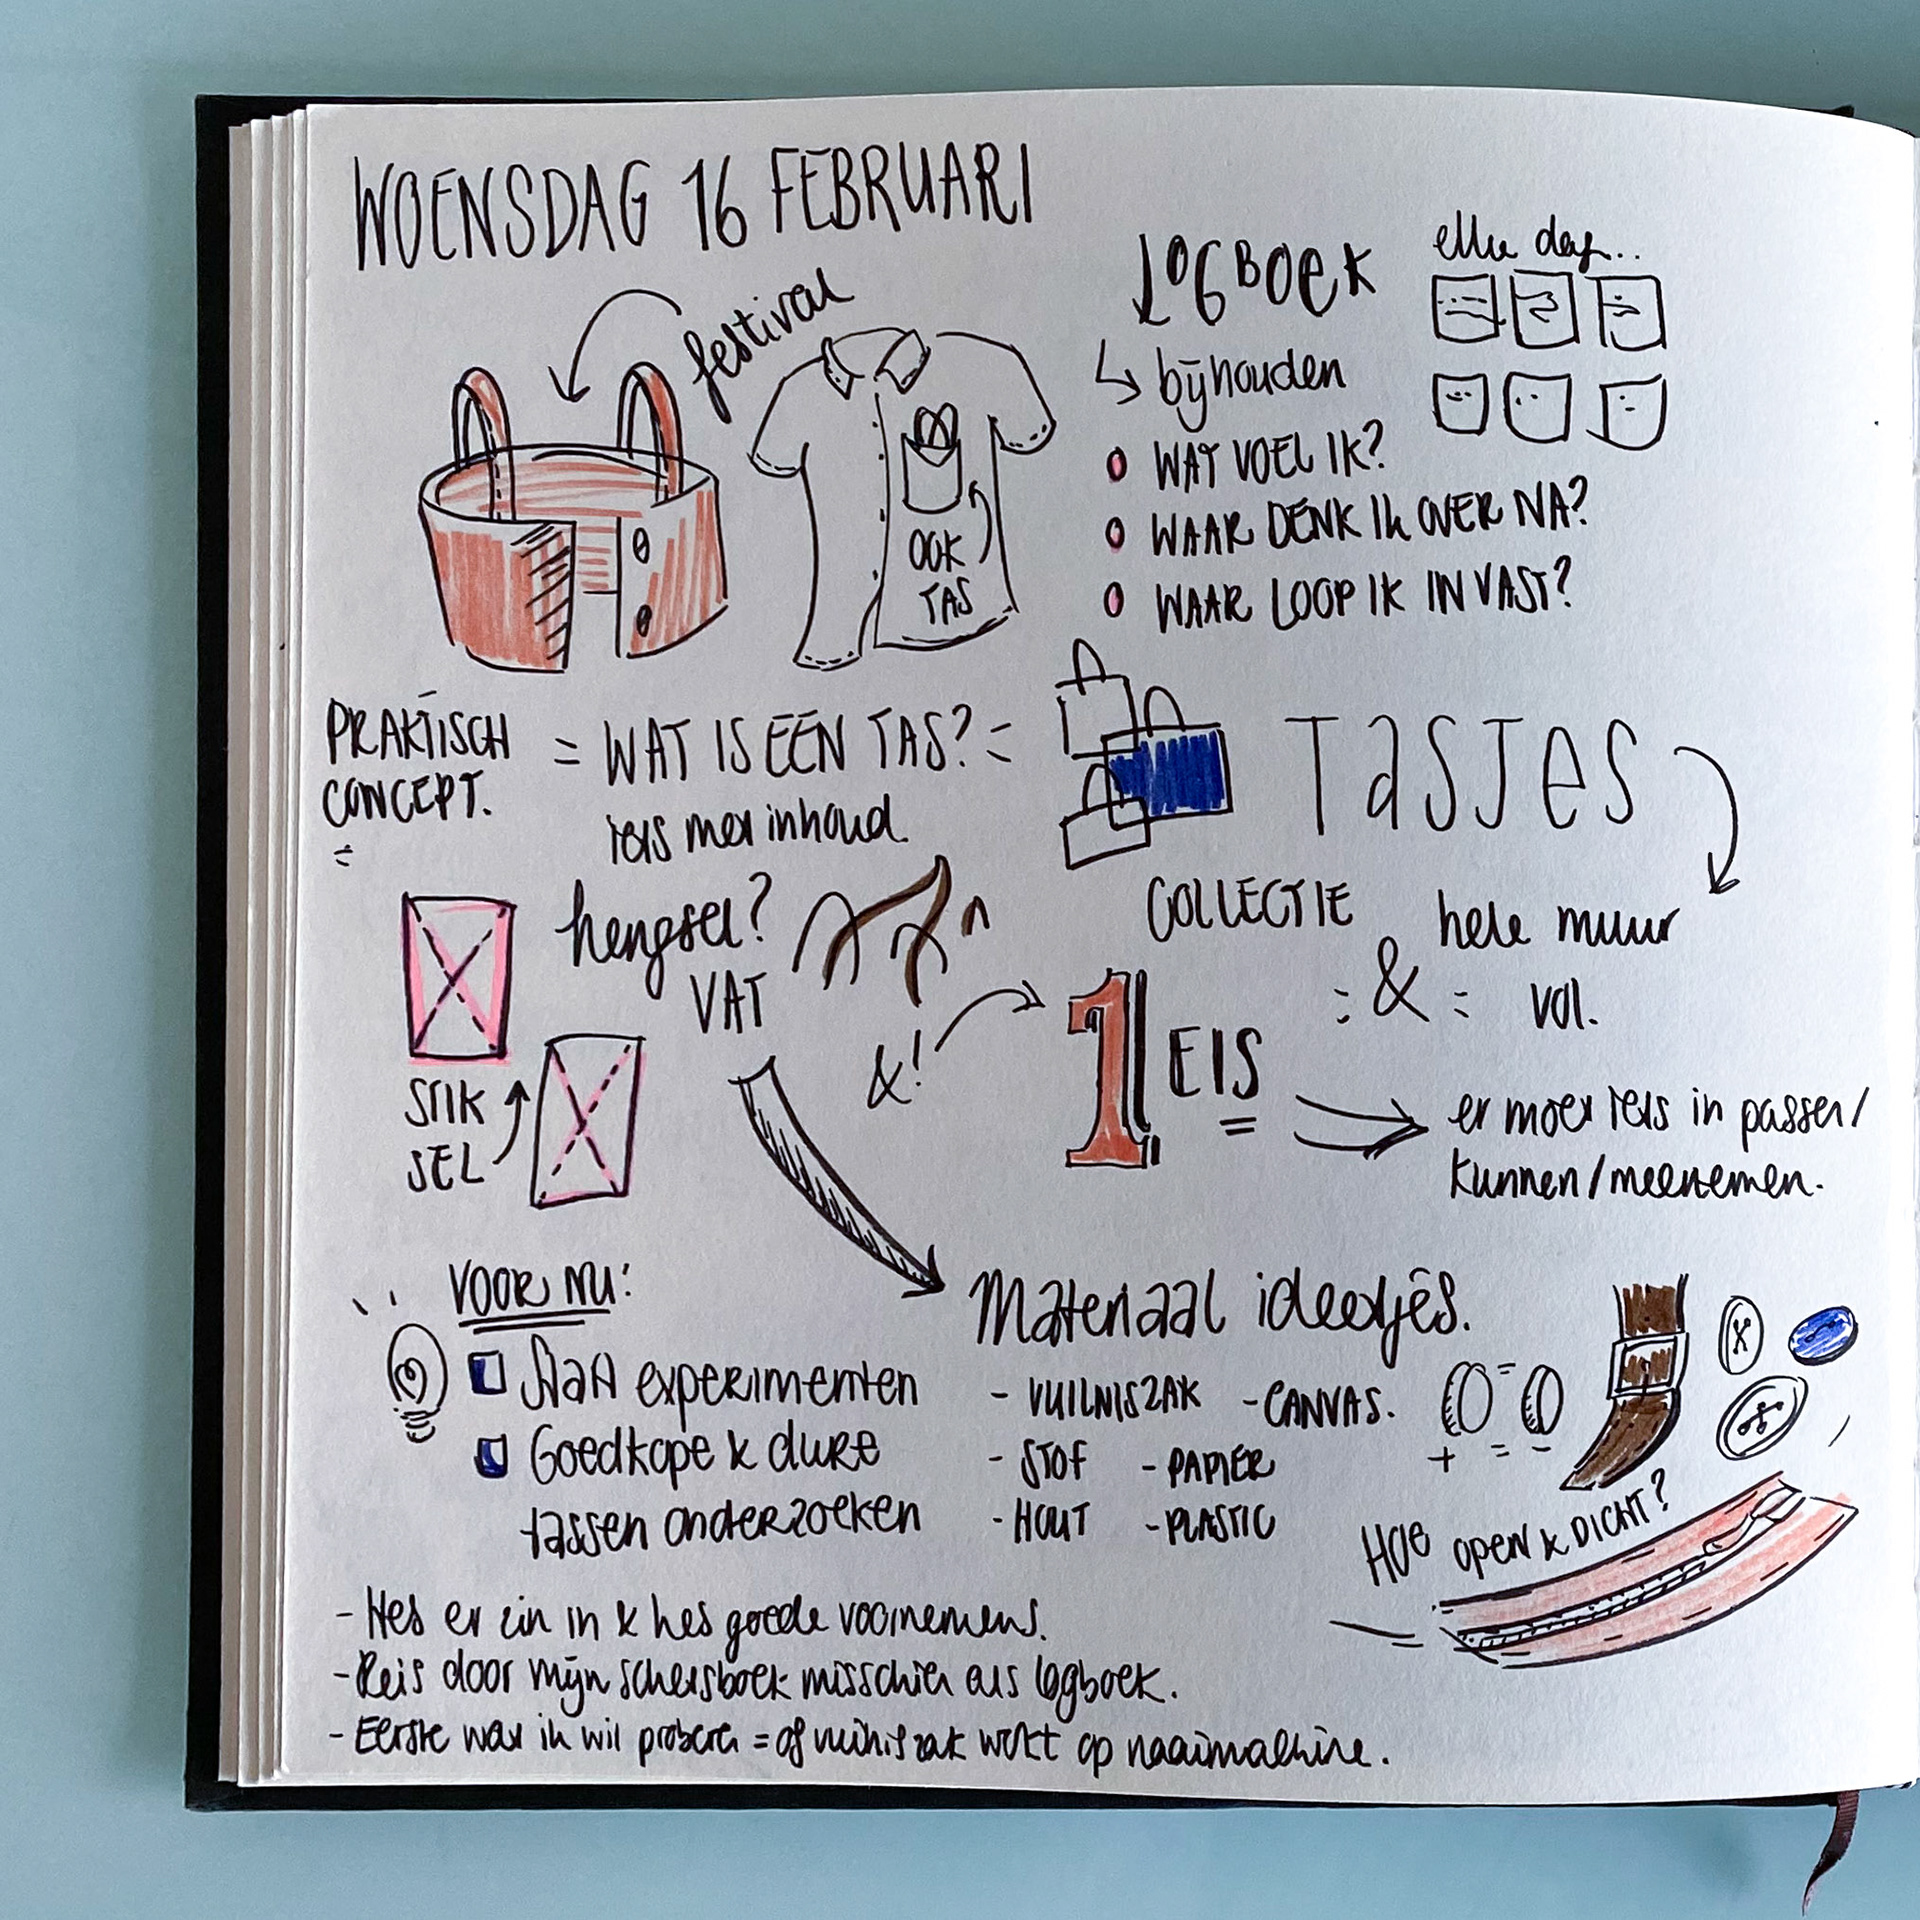 WOENSDAG 16 FEBRUARI
festival
OOK
TAS
LOGBOEK
elke dag..
bijhouden
WAT VOEL IK?
WAAR DENK IK OVER NA?
WAAR LOOP IK IN VAST?
PRAKTISCH
CONCEPT.
=
= WAT IS EEN TAS? =
iets met inhoud.
TASJES
hengsel?
VAT
COLLECTIE
= & =
hele muur
vol.
STIK
SEL
&!
1 EIS
er moet iets in passen/
kunnen/meenemen.
VOOR NU:
Start experimenten
Goedkope & dure
tassen onderzoeken
Materiaal ideetjes.
- VUILNISZAK - CANVAS.
- STOF - PAPIER
- HOUT - PLASTIC
+ = -
HOE OPEN & DICHT?
- Heb er zin in & heb goede voornemens.
- Reis door mijn schetsboek misschien als logboek.
- Eerste wat ik wil proberen = of vuilniszak werkt op naaimachine.